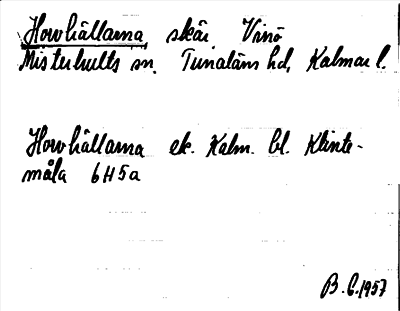 Hovhällarna, skär, Vinö
Misterhults sn. Tunaläns hd, Kalmar l.
Hovhällarna ek. Kalm. bl. Klinte-
måla 6H5a
B.G. 1957